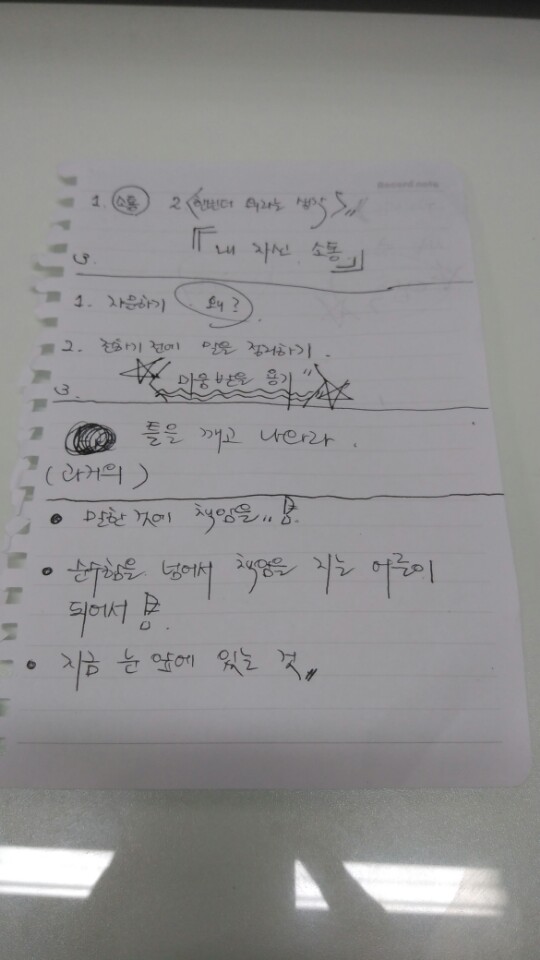 1. 소통 2 <한번더 하라는 생각>,,
『내 자신 소통』
3.
1. 자문하기 왜?
2. 전하기 전에 말을 정리하기.
3. 미움 받을 용기"
틀을 깨고 나와라.
(과거의)
• 말한 것에 책임을,,
• 순수함을 넘어서 책임을 지는 어른이
되어서
• 지금 눈 앞에 있는 것,,